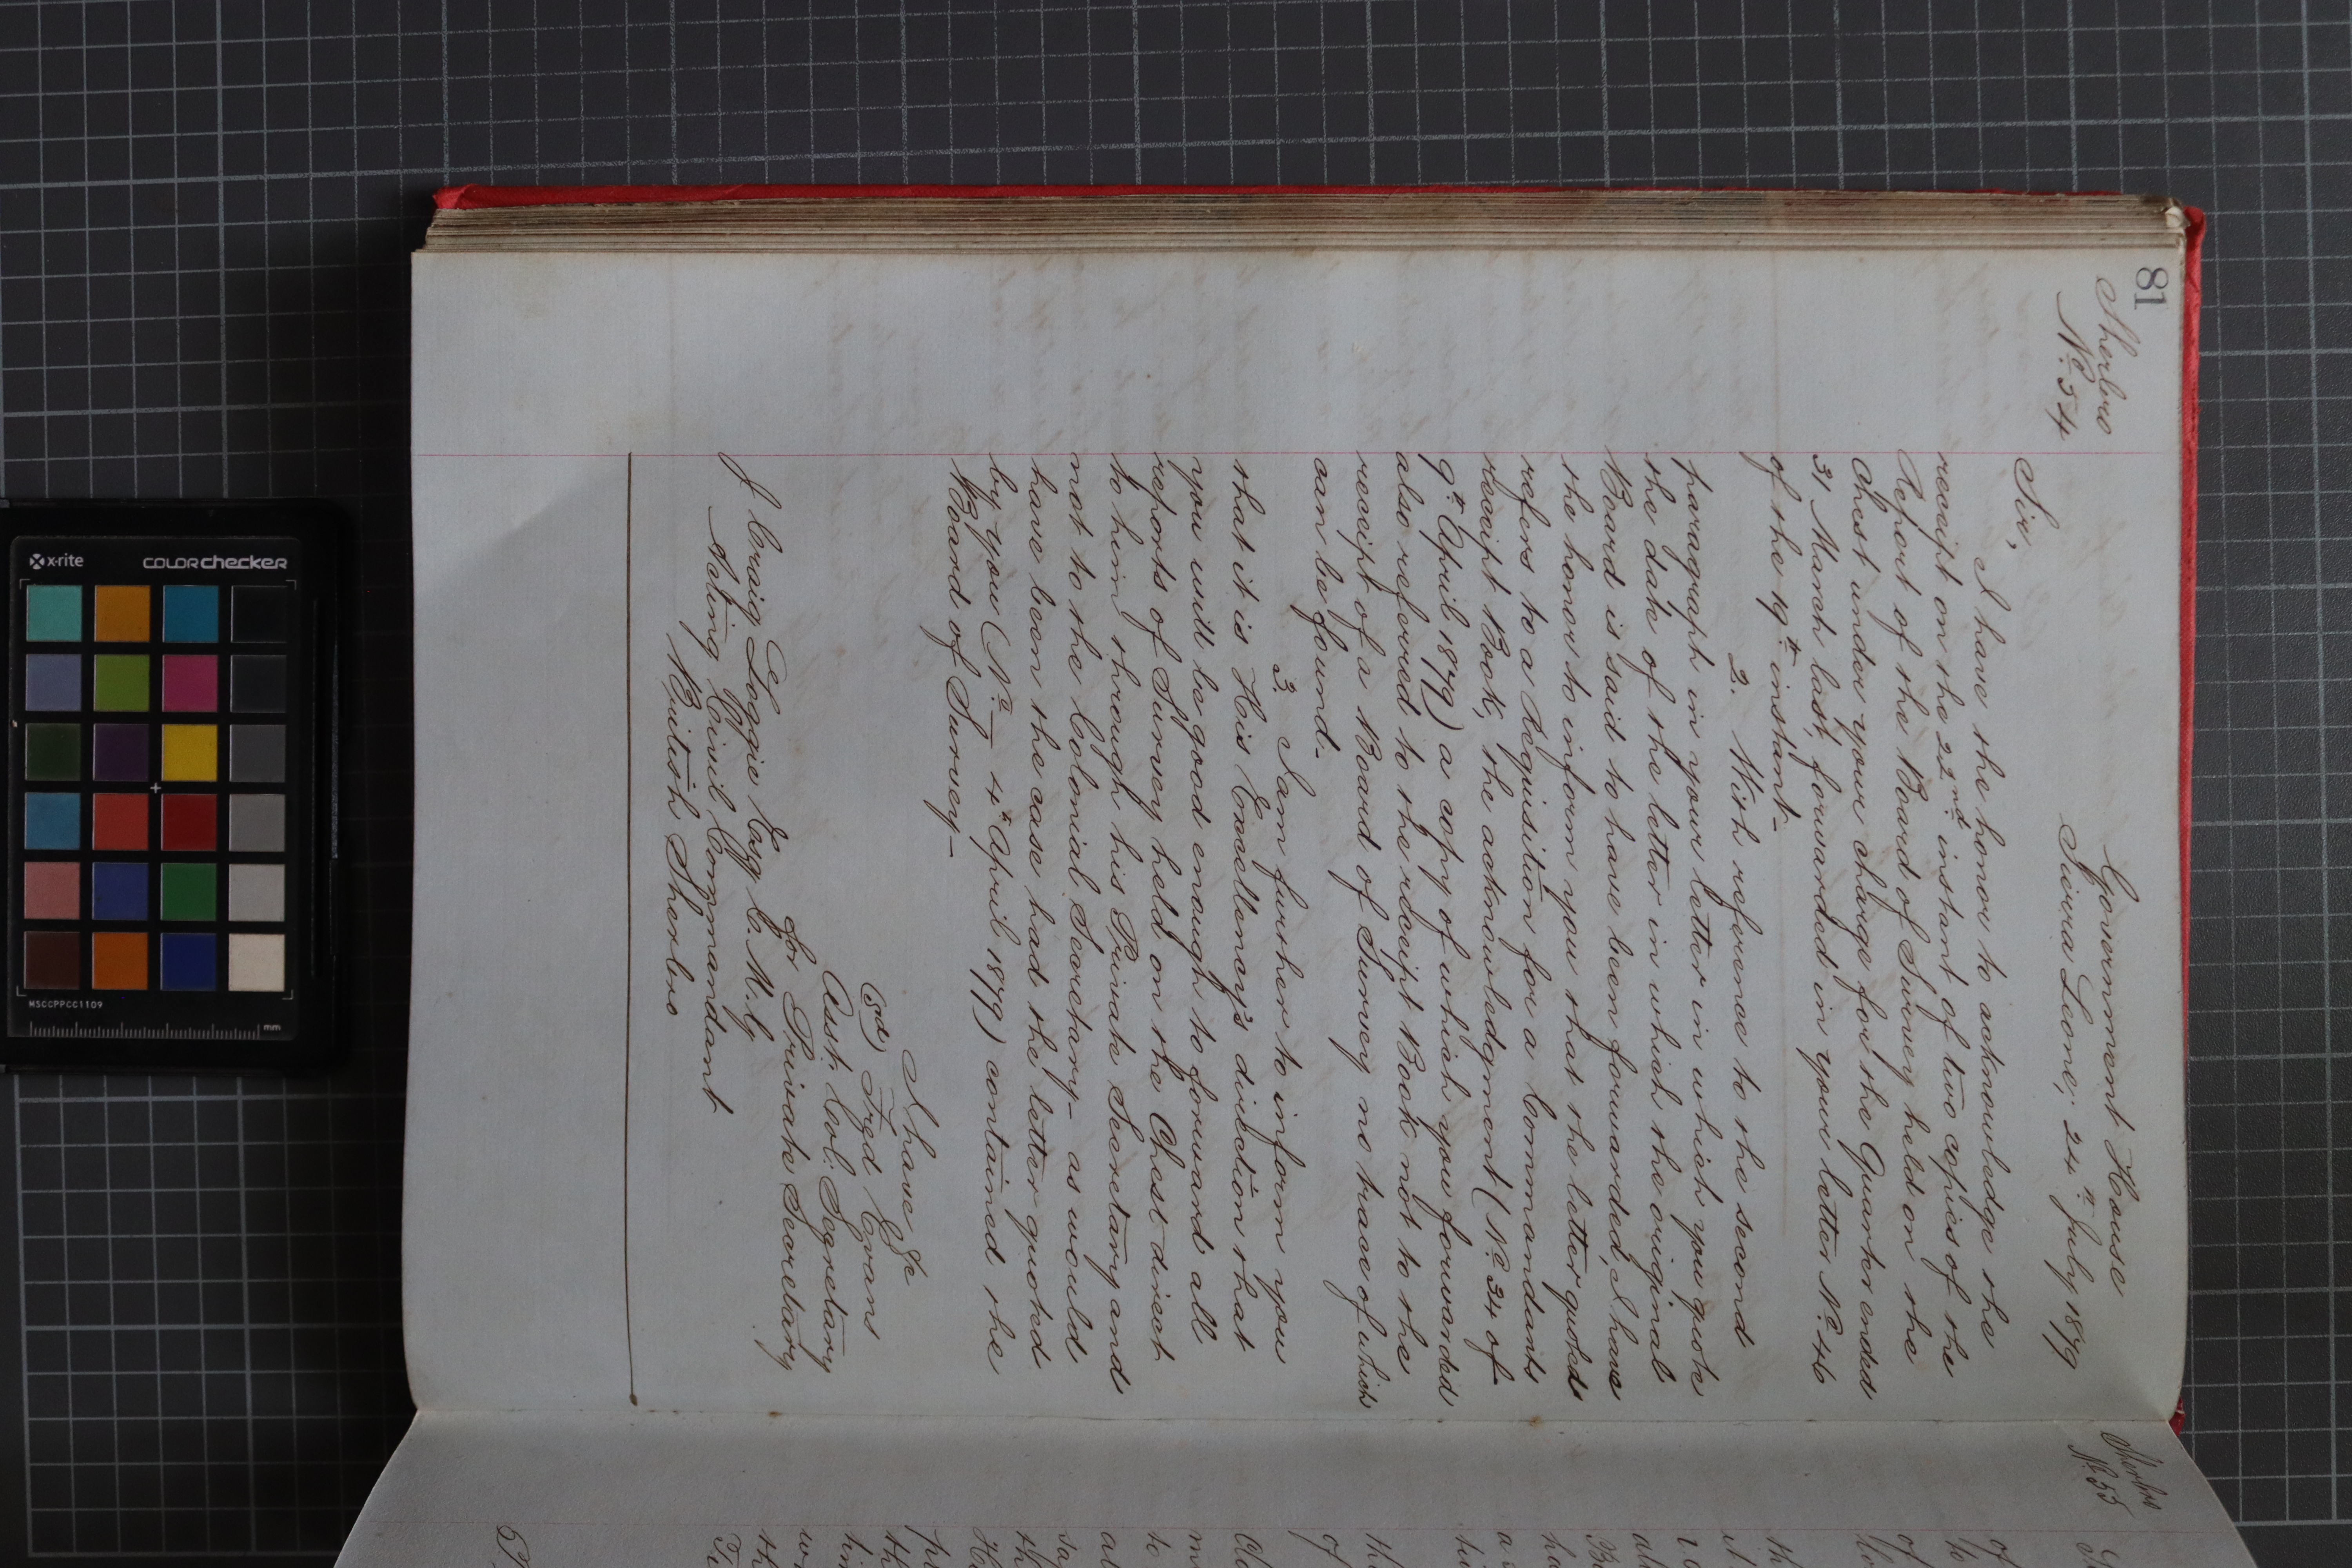 81
Sherbro
No. 54
Government House
Sierra Leone, 24th July 1879
Sir,
I have the honor to acknowledge the
receipt on the 22nd instant of two copies of the
Report of the Board of Survey held on the
Chest under your charge for the Quarter ended
31 March last, forwarded in your letter No. 46
of the 19th instant_
2. With reference to the second
paragraph in your letter in which you quote
the date of the letter in which the original
Board is said to have been forwarded, I have
the honor to inform you that the letter quoted
refers to a Requisition for a Commandants
receipt Book, the acknowledgment (No. 34 of
9th April 1879) a copy of which you forwarded
also referred to the receipt Book not to the
receipt of a Board of Survey no trace of which
can be found_
3. I am further to inform you
that it is His Excellency's direction that
you will be good enough to forward all
reports of Survey held on the Chest direct
to him through his Private Secretary and
not to the Colonial Secretary_ as would
have been the case had the letter quoted
by you (No. — 4th April 1879) contained the
Board of Survey_
I have &c
(sd) Fred Evans
Asst. Col. Secretary
for Private Secretary
J Craig Loggie Esq C. M. G.
&c
Acting Civil Commandant
British Sherbro
Sherbro
No. 55
x-rite
COLORchecker
MSCCPPCC1109
mm